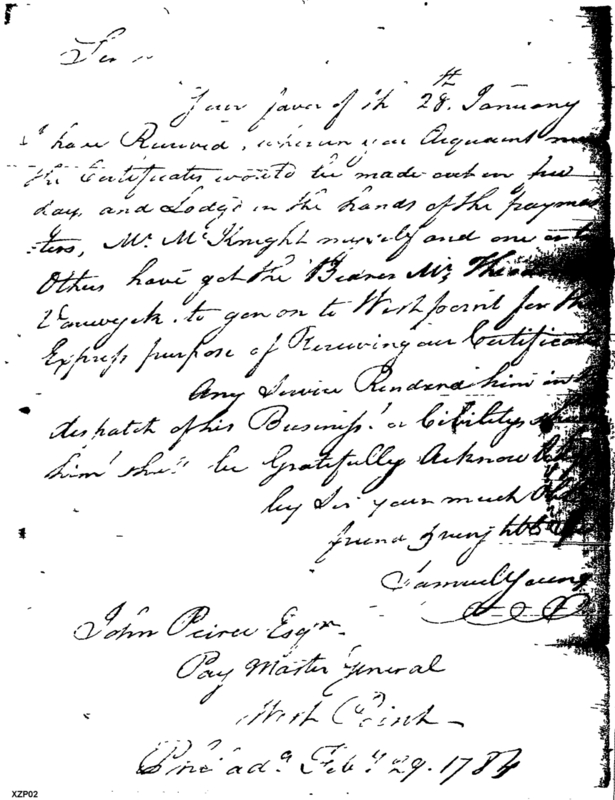 Sir
Your favor of th 28th January
I have Received, wherein you Acquaint me
the Certificates would be made out in few
days and Lodg'd in the hands of the paymas
ters, Mr. McKnight myself and one or
Others have got the Bearer Mr.
Vanwyck. to go on to Westpoint for the
Express purpose of Receiving our Certificate
Any Service Rendered him in
dispatch of his Business, or Civility
him shall be Gratefully Acknow
by Sir your much
friend
Samuel Young
John Peirce Esqr.
Pay Master General
West Point
Feby 29. 1784
XZP02